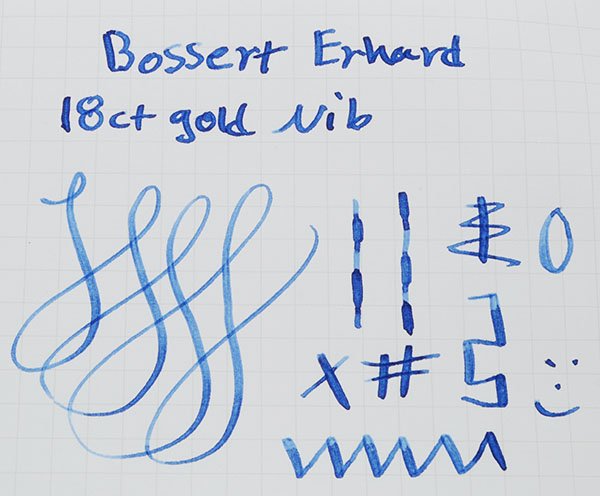 Bossert Erhard
18ct gold Nib
x #